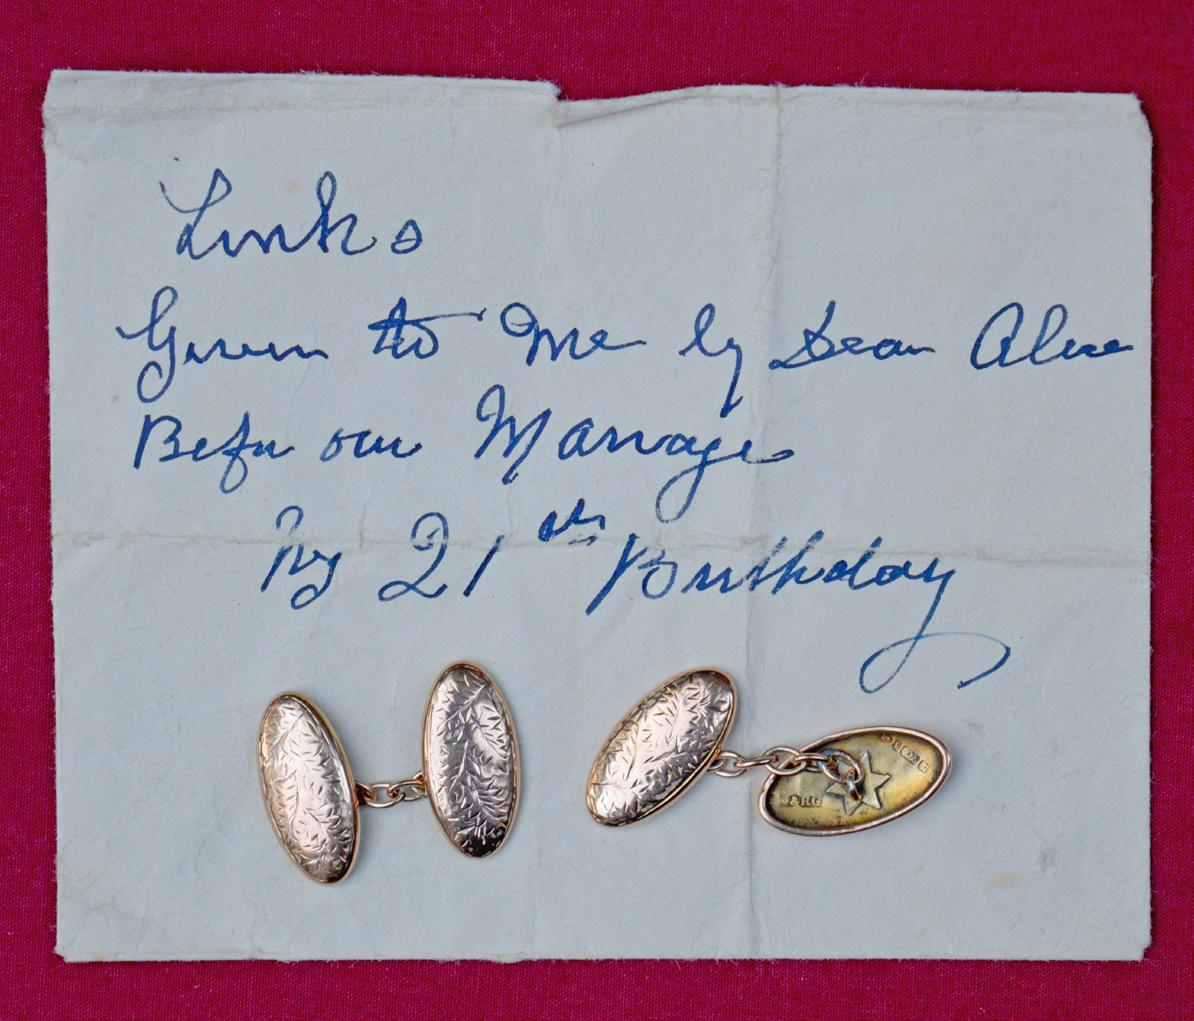 Links
Given to Me by Dear Alice
Before our Marriage
My 21 st Birthday